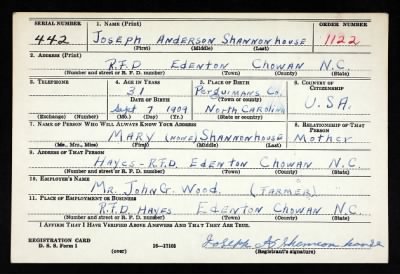 SERIAL NUMBER 1. NAME (Print) ORDER NUMBER
442 JOSEPH ANDERSON SHANNONHOUSE 1122
(First) (Middle) (Last)
2. ADDRESS (Print)
R.F.D EDENTON CHOWAN N.C.
(Number and street or R. F. D. number) (Town) (County) (State)
3. TELEPHONE 4. AGE IN YEARS 5. PLACE OF BIRTH 6. COUNTRY OF CITIZENSHIP
31 Perquimans Co.
DATE OF BIRTH (Town or county)
Sept 7 1909 NORTH CAROLINA U.S.A.
(Exchange) (Number) (Mo.) (Day) (Yr.) (State or country)
7. NAME OF PERSON WHO WILL ALWAYS KNOW YOUR ADDRESS 8. RELATIONSHIP OF THAT PERSON
MARY (NONE) SHANNONHOUSE Mother
(Mr., Mrs., Miss) (First) (Middle) (Last)
9. ADDRESS OF THAT PERSON
HAYES-R.F.D. EDENTON CHOWAN N.C.
(Number and street or R. F. D. number) (Town) (County) (State)
10. EMPLOYER'S NAME
MR. JOHN G. WOOD. (FARMER)
11. PLACE OF EMPLOYMENT OR BUSINESS
R.F.D. HAYES EDENTON CHOWAN N.C.
(Number and street or R. F. D. number) (Town) (County) (State)
I AFFIRM THAT I HAVE VERIFIED ABOVE ANSWERS AND THAT THEY ARE TRUE.
REGISTRATION CARD
D. S. S. Form 1 16-17105 Joseph A. Shannonhouse
(over) (Registrant's signature)